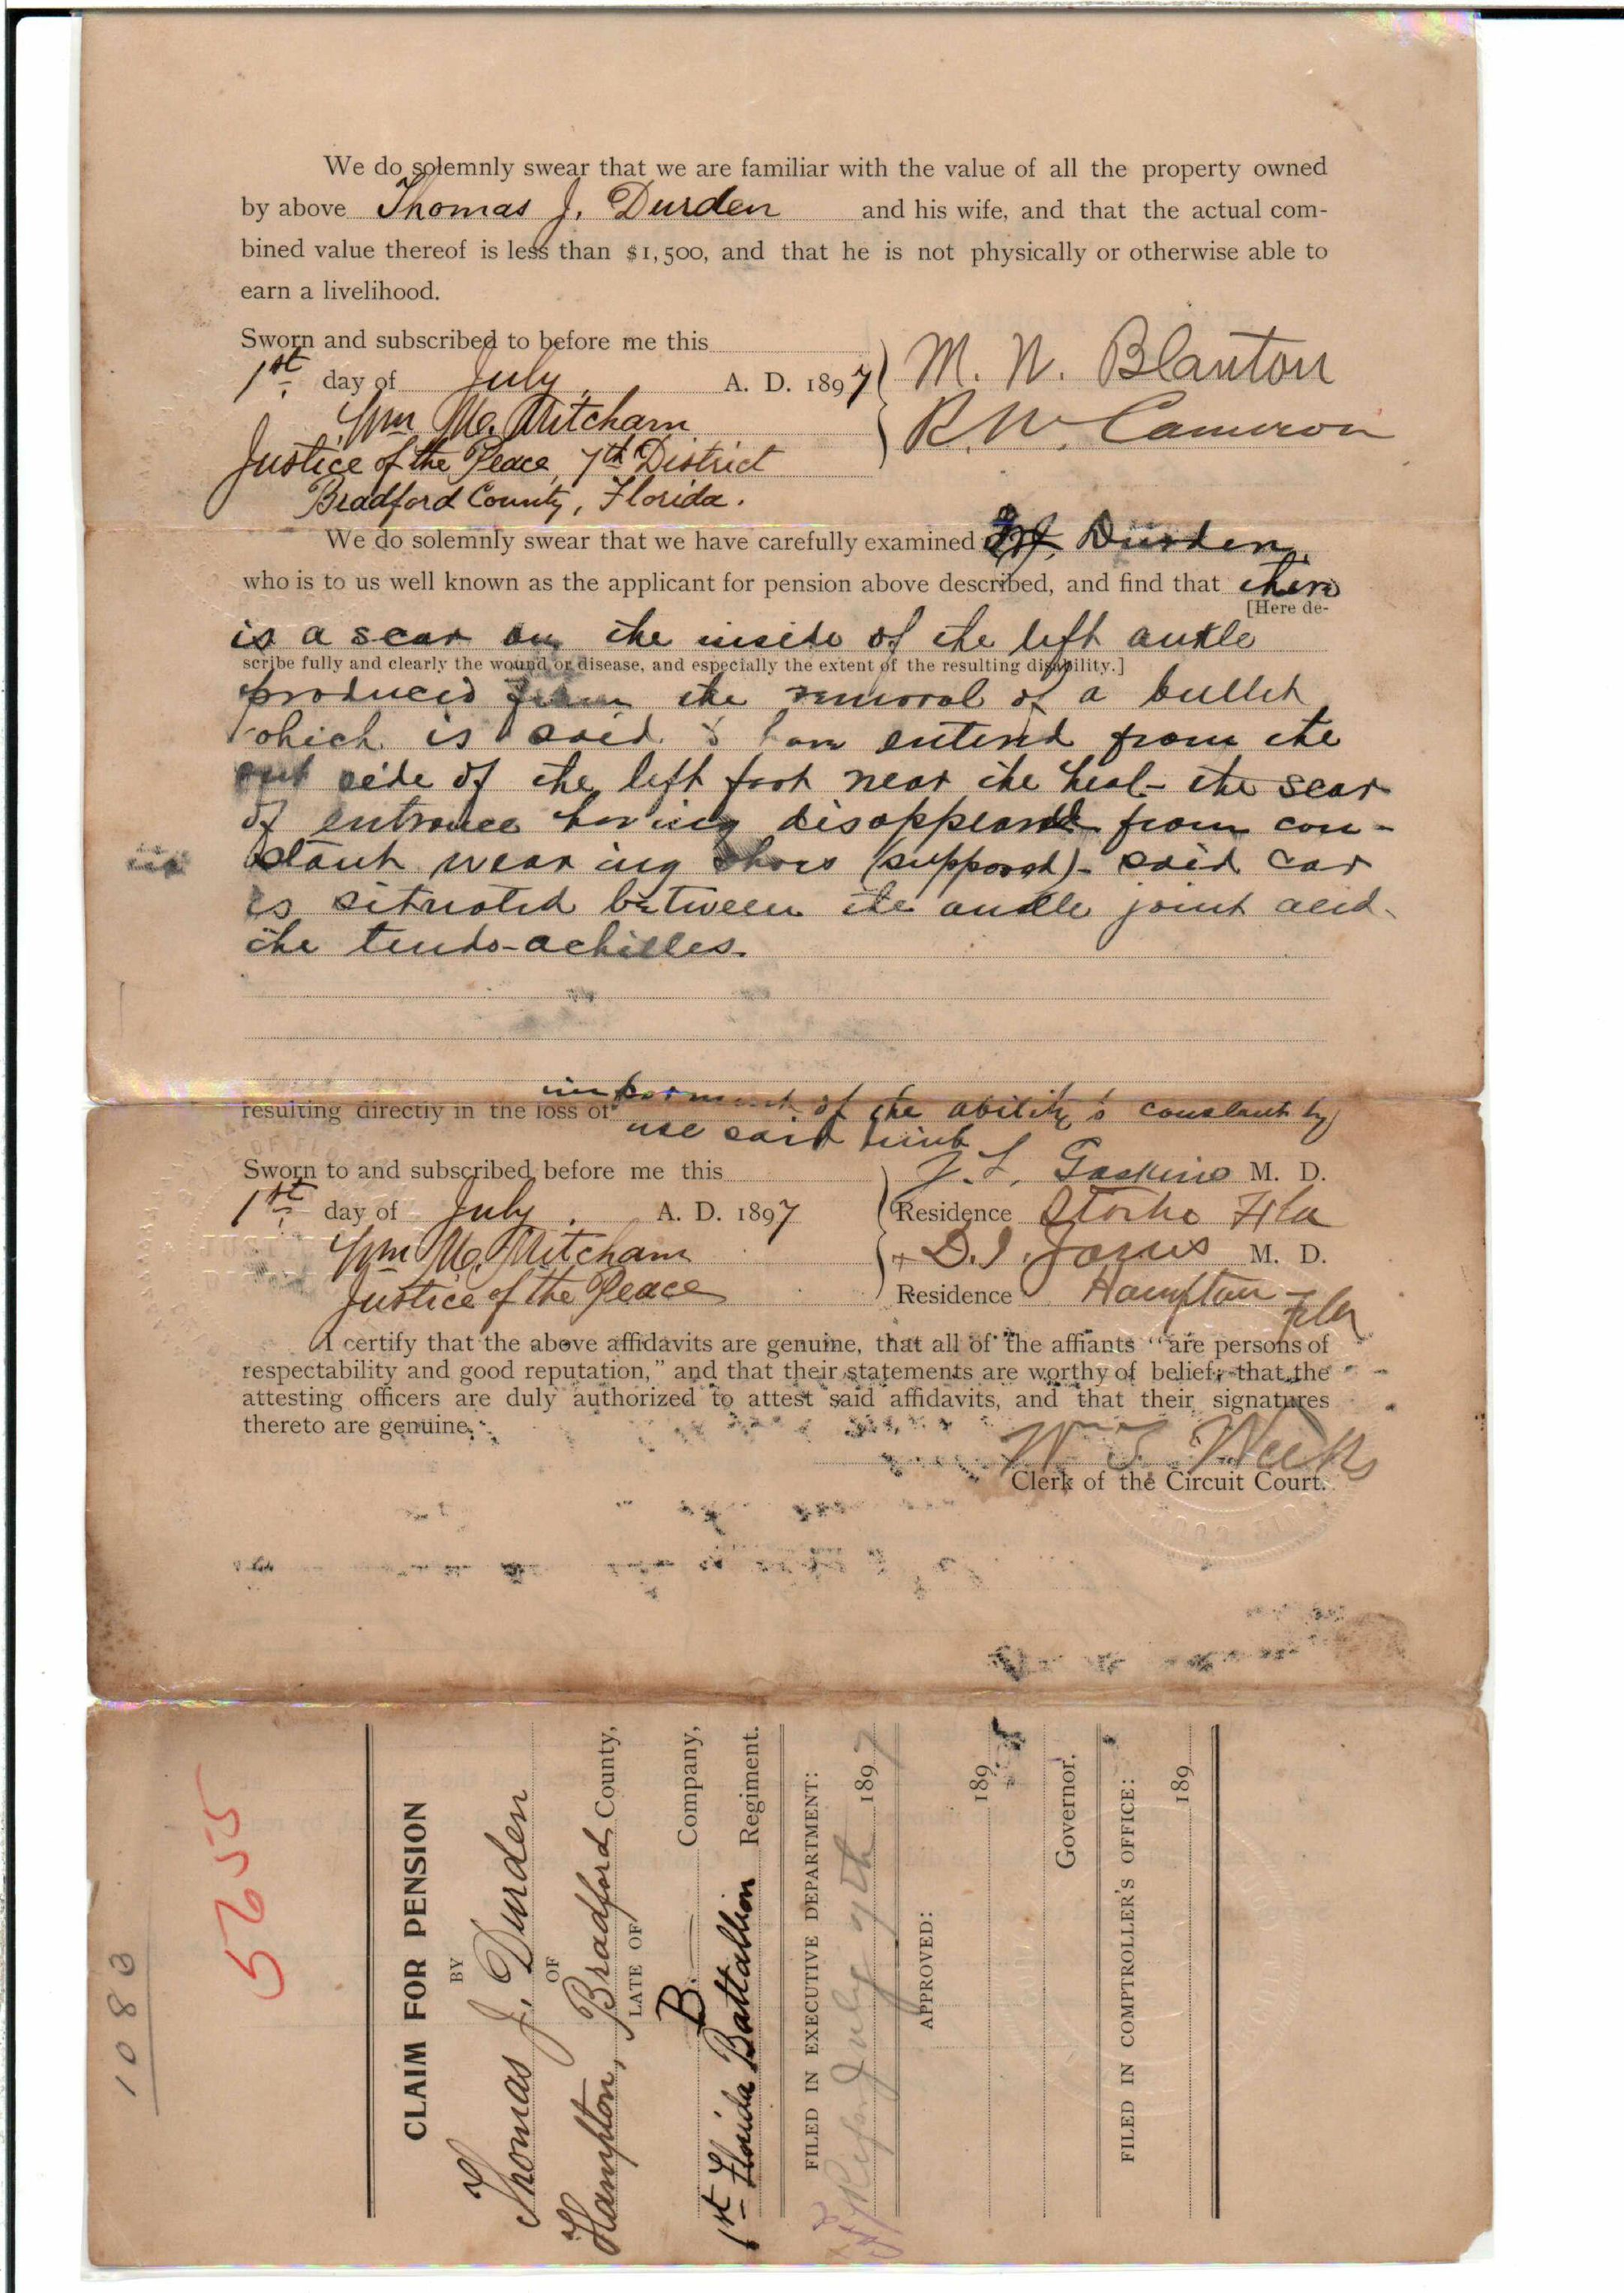 We do solemnly swear that we are familiar with the value of all the property owned
by above Thomas J. Durden and his wife, and that the actual com-
bined value thereof is less than $1,500, and that he is not physically or otherwise able to
earn a livelihood.
Sworn and subscribed to before me this
1st day of July, A. D. 1897
M. N. Blanton
Wm Mc. Mitcham
R. W. Cameron
Justice of the Peace, 7th District
Bradford County, Florida.
We do solemnly swear that we have carefully examined T. J. Durden,
who is to us well known as the applicant for pension above described, and find that there
[Here de-
is a scar on the inside of the left ankle
scribe fully and clearly the wound or disease, and especially the extent of the resulting disability.]
produced from the removal of a bullet
which is said to have entered from the
out side of the left foot near the heal - the scar
of entrance having disappeared from con-
stant wearing shoes (supposed) - said car
is situated between the ankle joint and
the tendo-achilles.
resulting directly in the loss of impairment of the ability to constantly
use said limb
Sworn to and subscribed before me this
J. L. Gaskins M. D.
1st day of July, A. D. 1897
Residence Starke Fla
Wm Mc. Mitcham
D. I. Jones M. D.
Justice of the Peace
Residence Hampton Fla
I certify that the above affidavits are genuine, that all of the affiants "are persons of
respectability and good reputation," and that their statements are worthy of belief; that the
attesting officers are duly authorized to attest said affidavits, and that their signatures
thereto are genuine.
W Weeks
Clerk of the Circuit Court.
1083
5655
CLAIM FOR PENSION
BY
Thomas J. Durden
OF
Hampton, Bradford County,
LATE OF
B. Company,
1st Florida Battallion Regiment.
FILED IN EXECUTIVE DEPARTMENT:
July 7th 1897
APPROVED:
189
Governor.
FILED IN COMPTROLLER'S OFFICE:
189